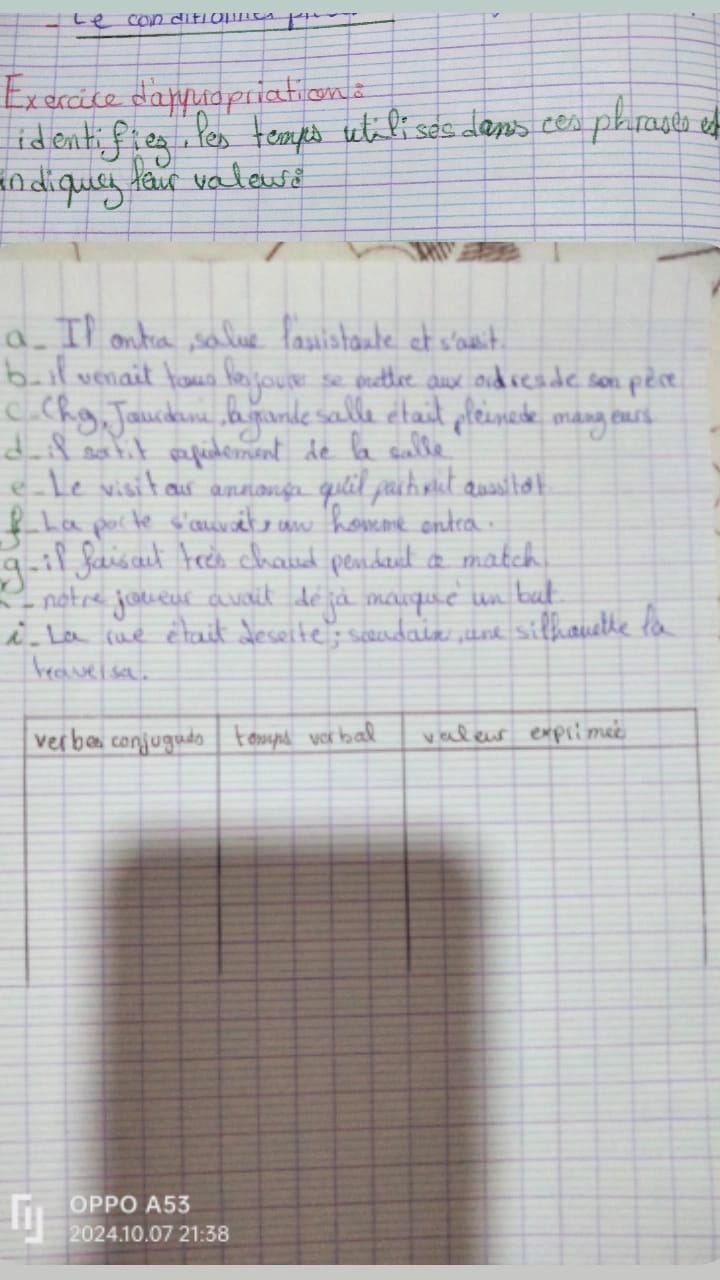 - Le conditionnel
Exercice d'appropriation :
identifiez les temps utilisés dans ces phrases et
indiquez leur valeurs :
a - Il entra, salue l'assistante et s'assit.
b - il venait tous les jours se mettre aux ordres de son père
c - Chez Jourdain, la grande salle était pleine de mangeurs
d - il sortit rapidement de la salle
e - Le visiteur annonça qu'il partirait aussitôt
f - La porte s'ouvrit, un homme entra.
g - il faisait très chaud pendant ce match
- notre joueur avait déjà marqué un but.
i - La rue était deserte ; soudain, une silhouette la
traversa.
verbes conjugués temps verbal valeur exprimée
OPPO A53
2024.10.07 21:38